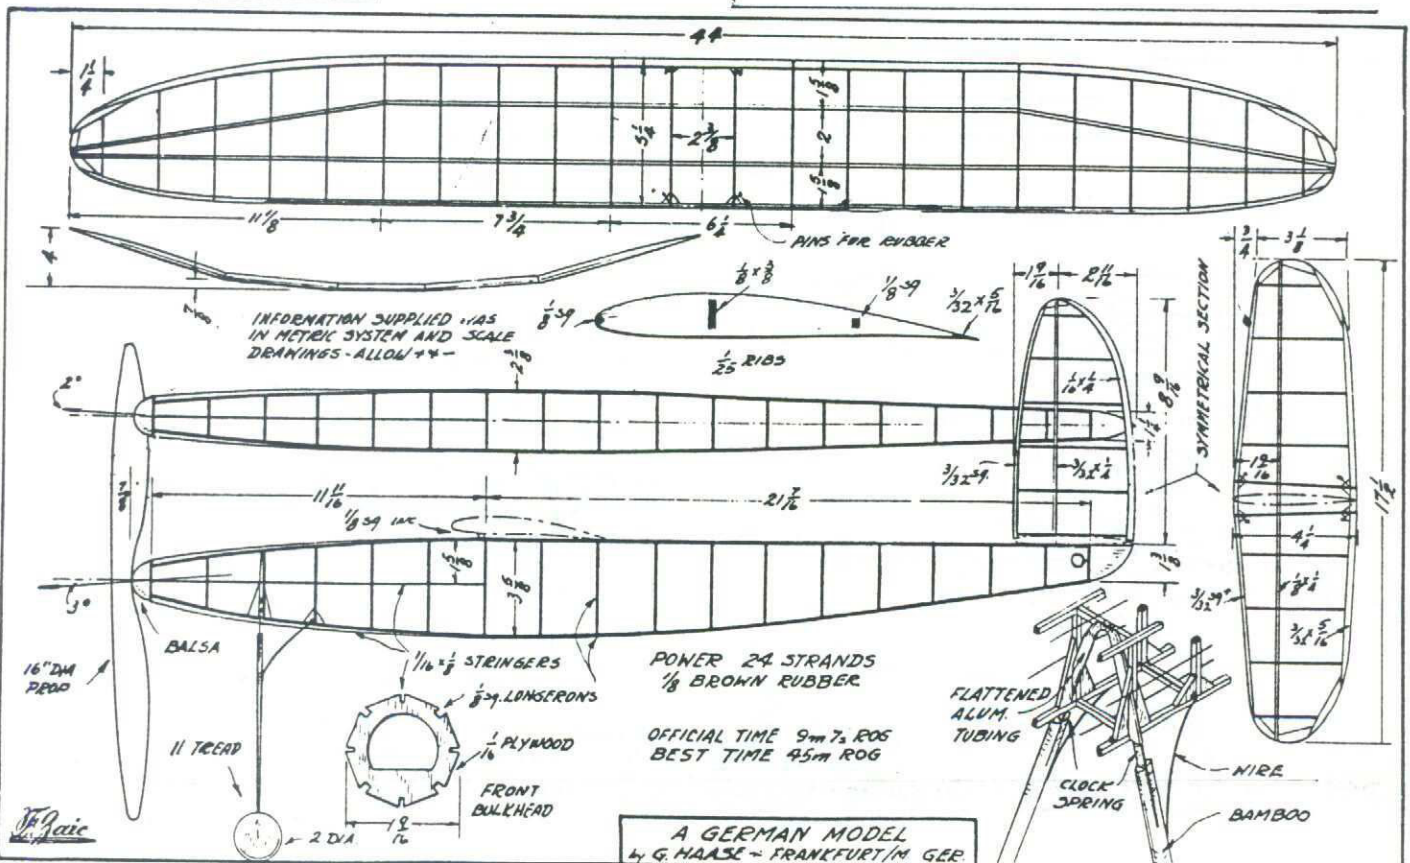 44
1 1/4
5 1/4
2 3/8
1 5/8
2
1 5/8
11 1/8
7 3/4
6 1/4
PINS FOR RUBBER
4
7/8
INFORMATION SUPPLIED WAS
IN METRIC SYSTEM AND SCALE
DRAWINGS - ALLOW + & -
1/8 SQ
1/8 x 3/8
1/8 SQ
3/32 x 5/16
1/25 RIBS
1 9/16
2 11/16
3/4
3 1/8
SYMMETRICAL SECTION
2°
2 3/8
1/16 x 1/4
8 9/16
1 1/4
3/32 SQ.
3/32 x 1/4
1 9/16
17 1/2
7/8
11 11/16
21 7/16
1/8 SQ INC
1 5/8
3 5/8
1 3/8
4 1/4
1/8 x 1/4
3/32 SQ
3/32 x 5/16
3°
BALSA
16" DIA
PROP
1/16 x 1/8 STRINGERS
1/8 SQ. LONGERONS
1/16 PLYWOOD
FRONT
BULKHEAD
1 9/16
11 TREAD
2 DIA
POWER 24 STRANDS
1/8 BROWN RUBBER
OFFICIAL TIME 9m 7s ROG
BEST TIME 45m ROG
FLATTENED
ALUM.
TUBING
CLOCK
SPRING
WIRE
BAMBOO
F Zaic
A GERMAN MODEL
by G. HAASE - FRANKFURT/M GER.